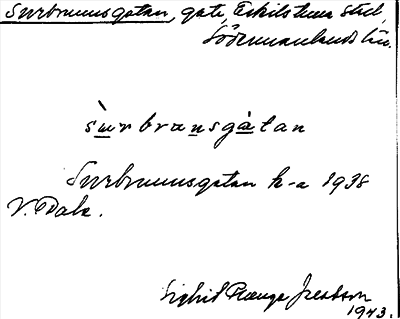 Surbrunnsgatan, gata, Eskilstuna stad,
Södermanlands län.
sùrbransgàtan
Surbrunnsgatan k-a 1938
V. Dala.
Sigrid Ivarsson
1943.